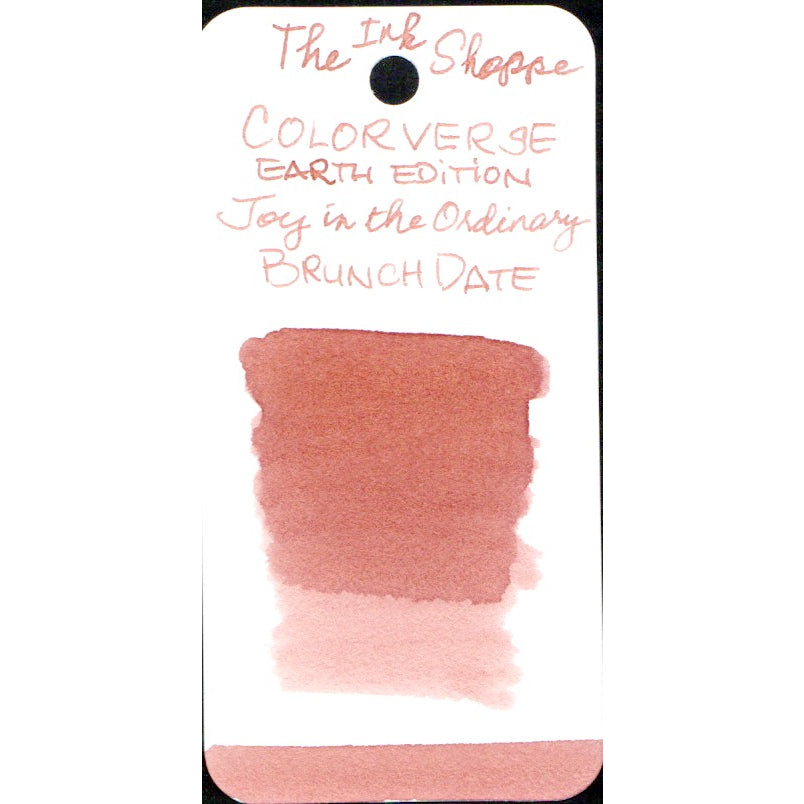 The Ink Shoppe
COLORVERSE
EARTH EDITION
Joy in the Ordinary
BRUNCH DATE